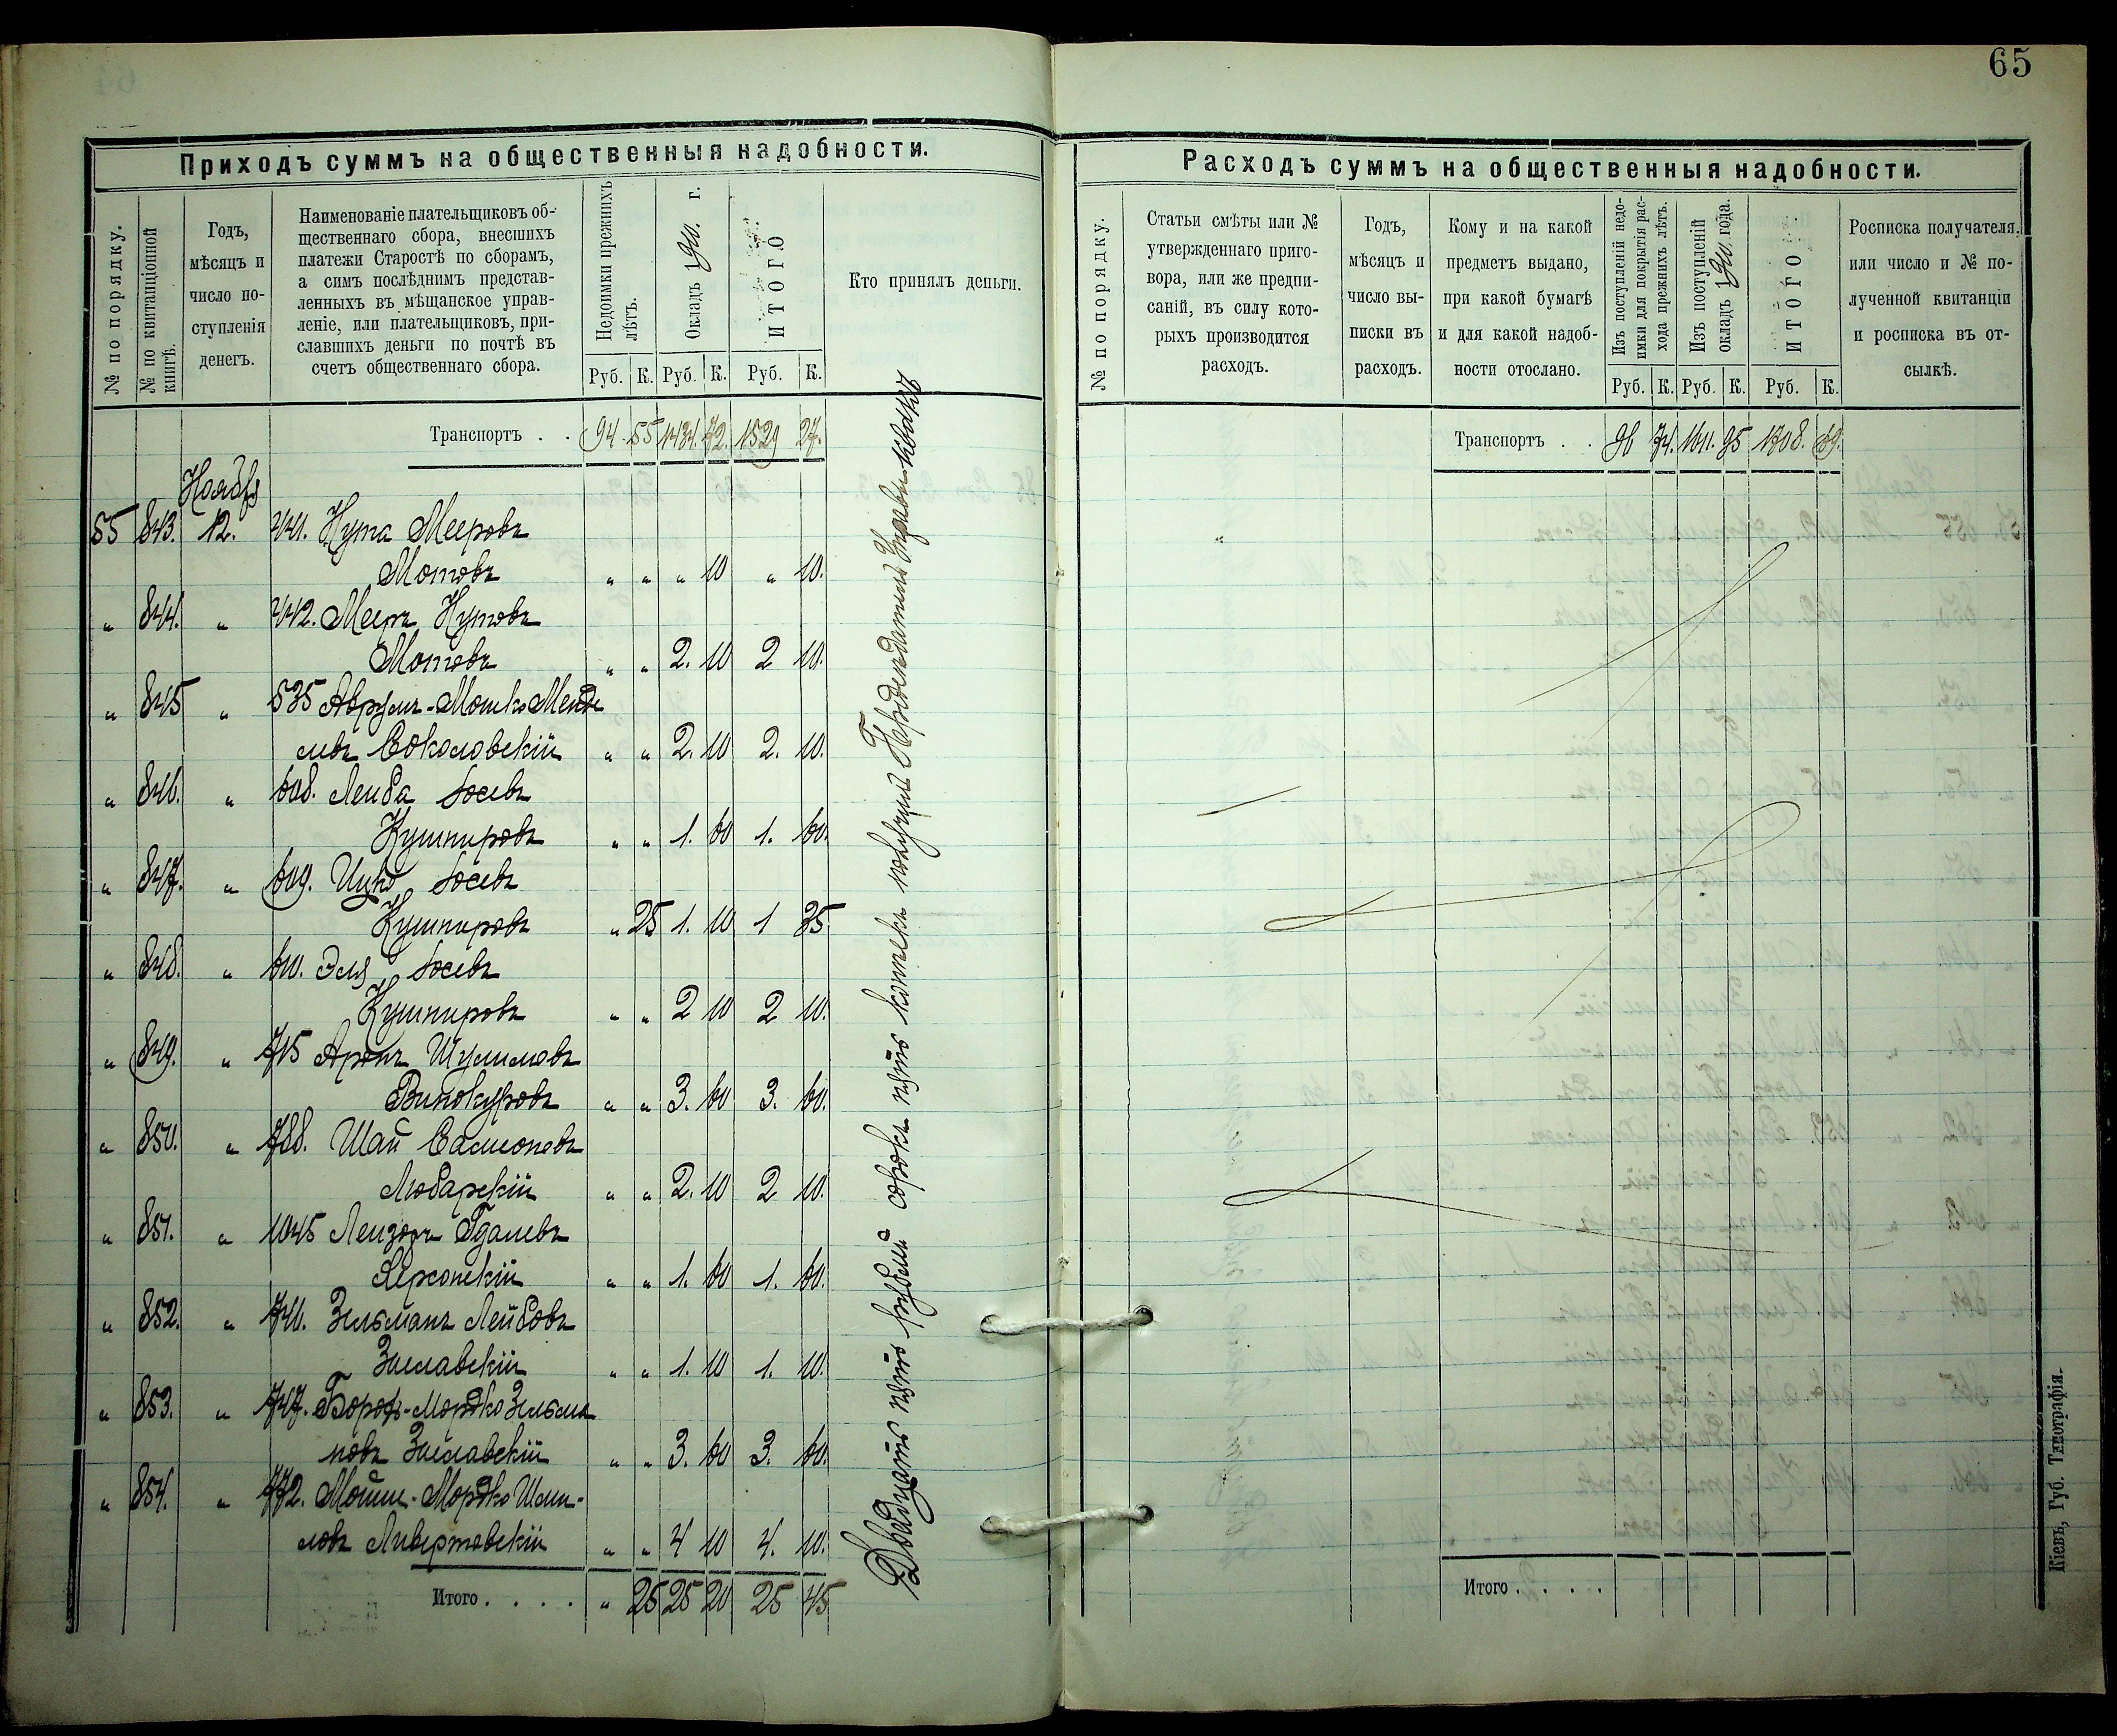 65
Приходъ суммъ на общественныя надобности.
№ по порядку.
№ по квитанціонной книгѣ.
Годъ,
мѣсяцъ и
число по-
ступленія
денегъ.
Наименованіе плательщиковъ об-
щественнаго сбора, внесшихъ
платежи Старостѣ по сборамъ,
а симъ послѣднимъ представ-
ленныхъ въ мѣщанское управ-
леніе, или плательщиковъ, при-
славшихъ деньги по почтѣ въ
счетъ общественнаго сбора.
Недоимки прежнихъ
лѣтъ.
Окладъ 1911. г.
ИТОГО
Кто принялъ деньги.
Руб. К. Руб. К. Руб. К.
Транспортъ . . 94 55 1434. 72. 1529 27.
Ноября
55 843. 12. 441. Нута Мееровъ
Мотовъ " " " 10 " 10.
" 844. " 442. Мееръ Нутовъ
Мотовъ " " 2. 10 2 10.
" 845 " 535 Аврумъ-Мошко Менде
левъ Соколовскій " " 2. 10 2. 10.
" 846. " 608. Лейба Іосевъ
Кушнировъ " " 1. 60 1. 60.
" 847. " 609. Ицко Іосевъ
Кушнировъ " 25 1. 10 1 35.
" 848. " 610. Эля Іосевъ
Кушнировъ " " 2 10 2 10.
" 849. " 715 Аронъ Шулимовъ
Винокуровъ " " 3. 60 3. 60.
" 850. " 788. Шая Саломоновъ
Любарскій " " 2. 10 2 10.
" 851. " 1045 Лейзоръ Гдалевъ
Херсонскій " " 1. 60 1. 60.
" 852. " 746. Зельманъ Лейбовъ
Заславскій " " 1. 10 1. 10.
" 853. " 747. Борохъ-Мордко Зельма
новъ Заславскій " " 3. 60 3. 60.
" 854. " 772. Мошко-Мордко Шми-
ловъ Ливертовскій " " 4 10 4. 10.
Итого . . . . " 25 25 20 25 45
Двадцать пять рублей сорокъ пять копѣекъ получилъ
Расходъ суммъ на общественныя надобности.
№ по порядку.
Статьи смѣты или №
утвержденнаго приго-
вора, или же предпи-
саній, въ силу кото-
рыхъ производится
расходъ.
Годъ,
мѣсяцъ и
число вы-
писки въ
расходъ.
Кому и на какой
предметъ выдано,
при какой бумагѣ
и для какой надоб-
ности отослано.
Изъ поступленій недо-
имки для покрытія рас-
хода прежнихъ лѣтъ.
Изъ поступленій
окладъ 1911. года.
ИТОГО
Росписка получателя,
или число и № по-
лученной квитанціи
и росписка въ от-
сылкѣ.
Руб. К. Руб. К. Руб. К.
Транспортъ . . 96 74. 1611. 95 1708. 69.
"
Итого . . . .
Кіевъ, Губ. Типографія.